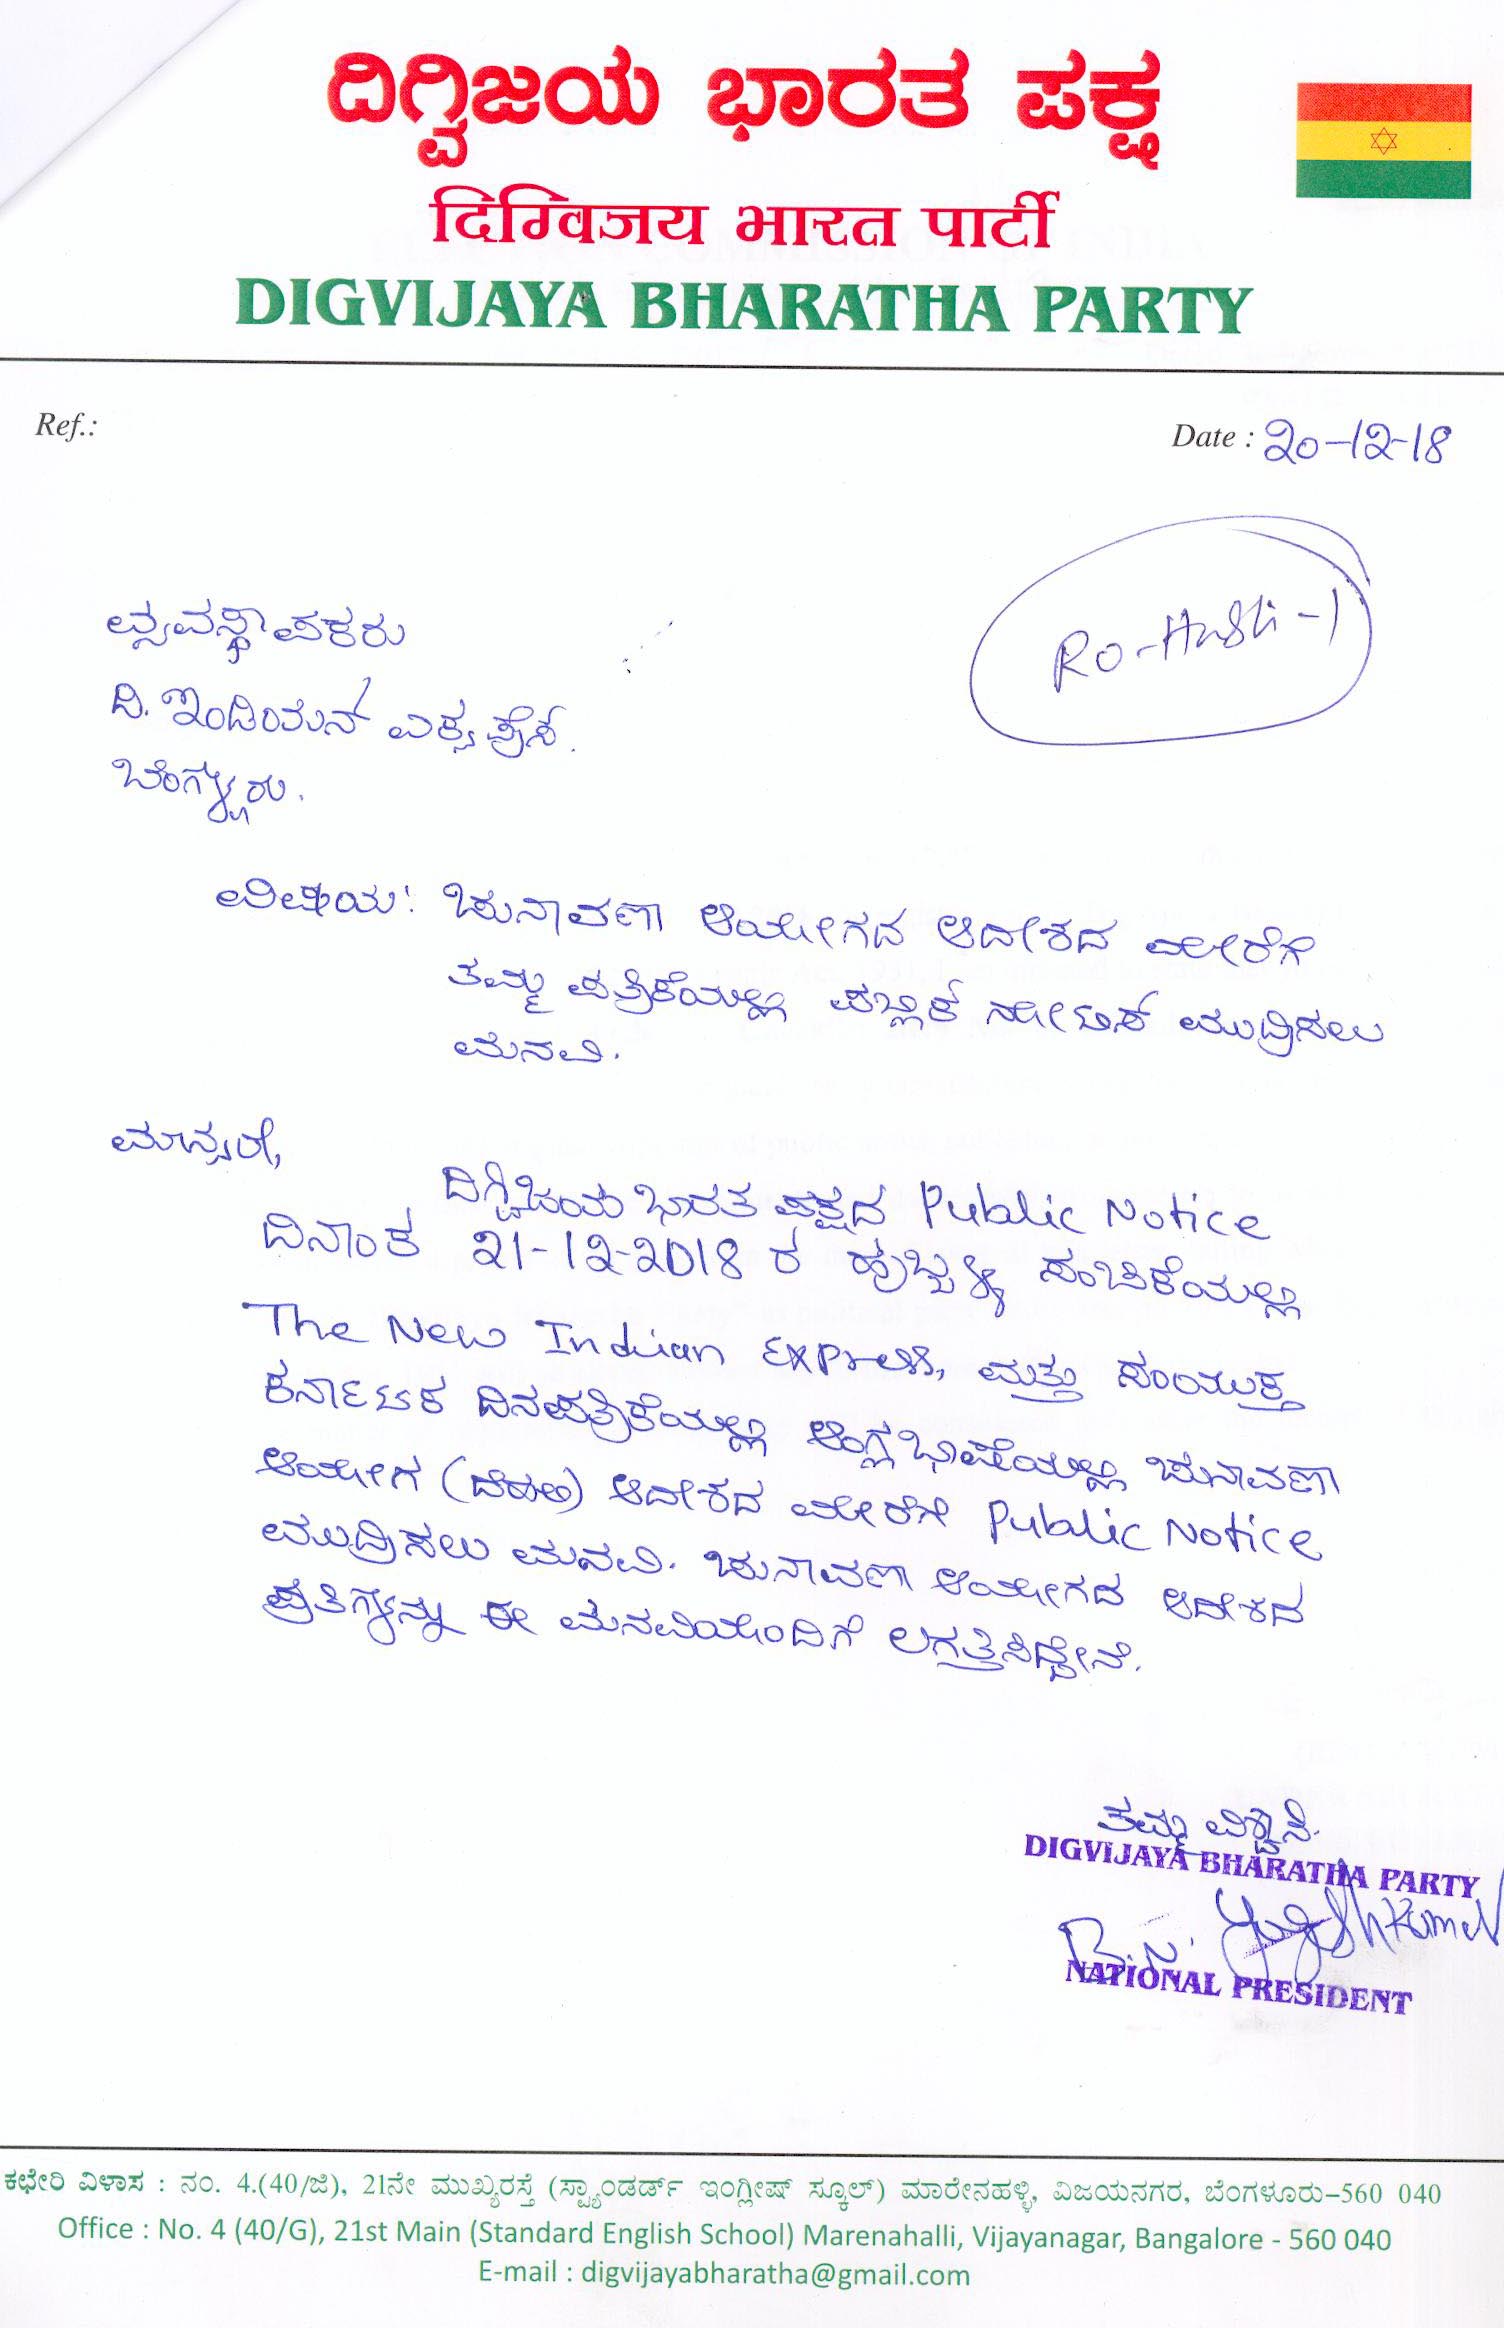 ದಿಗ್ವಿಜಯ ಭಾರತ ಪಕ್ಷ
दिग्विजय भारत पार्टी
DIGVIJAYA BHARATHA PARTY
Ref.:
Date : 20-12-18
RO-Hubli-1
ವ್ಯವಸ್ಥಾಪಕರು
ದಿ. ಇಂಡಿಯನ್ ಎಕ್ಸಪ್ರೆಸ್.
ಬೆಂಗಳೂರು.
ವಿಷಯ: ಚುನಾವಣಾ ಆಯೋಗದ ಆದೇಶದ ಮೇರೆಗೆ
ತಮ್ಮ ಪತ್ರಿಕೆಯಲ್ಲಿ ಪಬ್ಲಿಕ್ ನೋಟಿಸ್ ಮುದ್ರಿಸಲು
ಮನವಿ.
ಮಾನ್ಯರೇ,
ದಿಗ್ವಿಜಯ ಭಾರತ ಪಕ್ಷದ Public Notice
ದಿನಾಂಕ 21-12-2018 ರ ಹುಬ್ಬಳ್ಳಿ ಸಂಚಿಕೆಯಲ್ಲಿ
The New Indian Express, ಮತ್ತು ಸಂಯುಕ್ತ
ಕರ್ನಾಟಕ ದಿನಪತ್ರಿಕೆಯಲ್ಲಿ ಆಂಗ್ಲಭಾಷೆಯಲ್ಲಿ ಚುನಾವಣಾ
ಆಯೋಗ (ದೆಹಲಿ) ಆದೇಶದ ಮೇರೆಗೆ Public Notice
ಮುದ್ರಿಸಲು ಮನವಿ. ಚುನಾವಣಾ ಆಯೋಗದ ಆದೇಶದ
ಪ್ರತಿಗಳನ್ನು ಈ ಮನವಿಯೊಂದಿಗೆ ಲಗತ್ತಿಸಿದ್ದೇನೆ.
ತಮ್ಮ ವಿಶ್ವಾಸಿ.
DIGVIJAYA BHARATHA PARTY
NATIONAL PRESIDENT
ಕಛೇರಿ ವಿಳಾಸ : ನಂ. 4.(40/ಜಿ), 21ನೇ ಮುಖ್ಯರಸ್ತೆ (ಸ್ಟ್ಯಾಂಡರ್ಡ್ ಇಂಗ್ಲೀಷ್ ಸ್ಕೂಲ್) ಮಾರೇನಹಳ್ಳಿ, ವಿಜಯನಗರ, ಬೆಂಗಳೂರು–560 040
Office : No. 4 (40/G), 21st Main (Standard English School) Marenahalli, Vijayanagar, Bangalore - 560 040
E-mail : digvijayabharatha@gmail.com